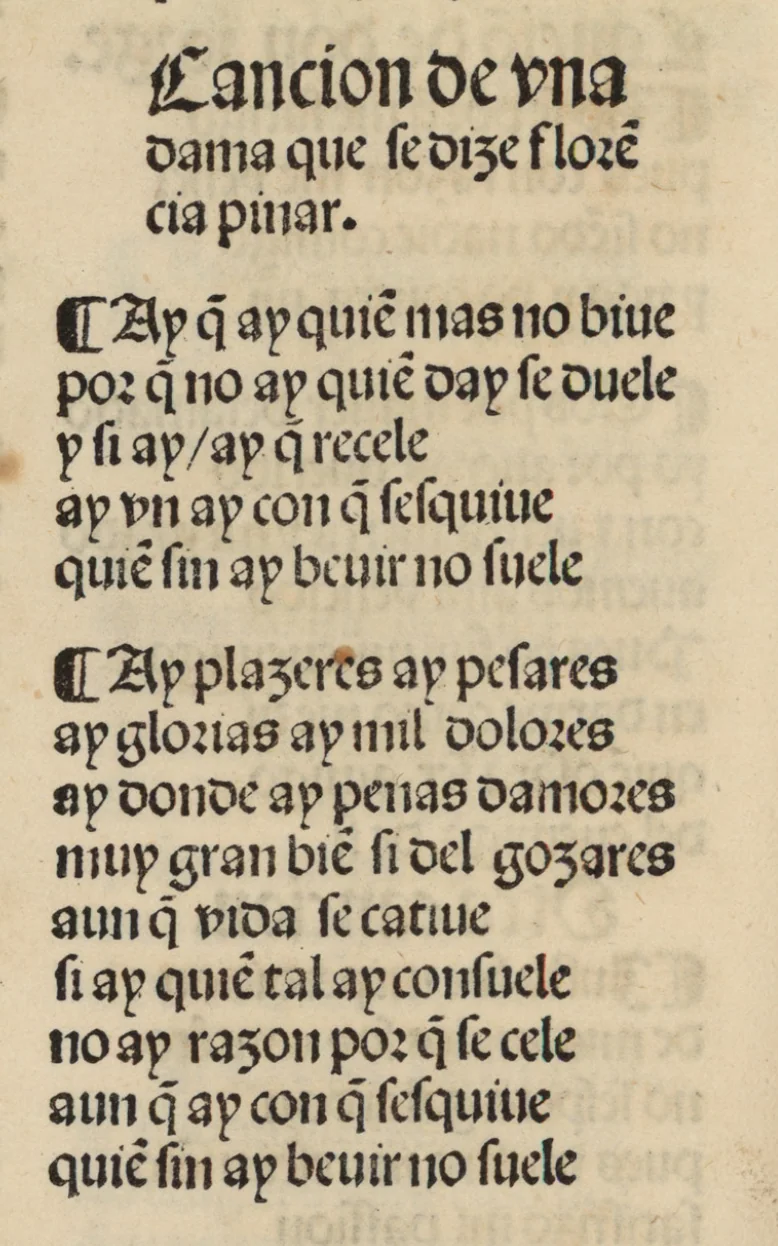 Cancion de vna
dama que se dize florē
cia pinar.
¶ Ay q̄ ay quiē mas no biue
por q̄ no ay quiē day se duele
y si ay/ay q̄ recele
ay vn ay con q̄ sesquiue
quiē sin ay beuir no suele
¶ Ay plazeres ay pesares
ay glorias ay mil dolores
ay donde ay penas damores
muy gran biē si del gozares
aun q̄ vida se catiue
si ay quiē tal ay consuele
no ay razon por q̄ se cele
aun q̄ ay con q̄ sesquiue
quiē sin ay beuir no suele